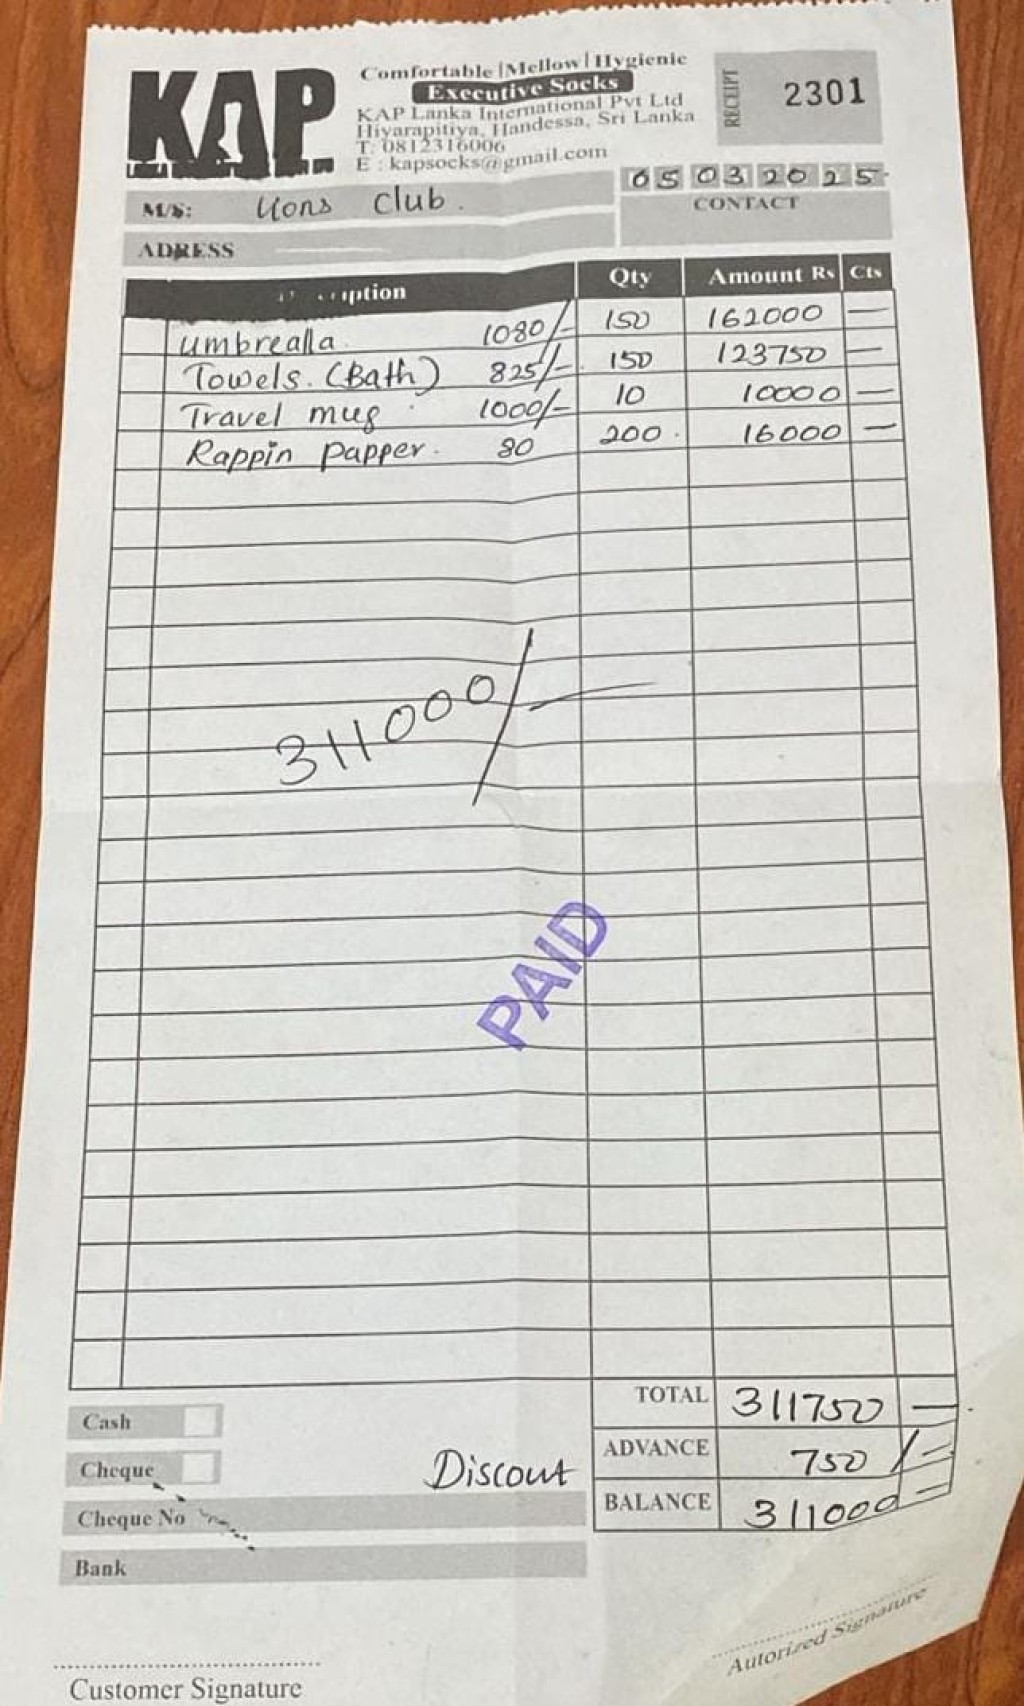 KAP
Comfortable | Mellow | Hygienic
Executive Socks
KAP Lanka International Pvt Ltd
Hiyarapitiya, Handessa, Sri Lanka
T: 0812316006
E : kapsocks@gmail.com
RECEIPT 2301
05 03 2025
M/S: Lions Club.
CONTACT
ADRESS
Qty Amount Rs Cts
umbrealla 1080/- 150 162000 —
Towels. (Bath) 825/- 150 123750 —
Travel mug 1000/- 10 10000 —
Rappin papper. 80 200 16000 —
311000/-
PAID
TOTAL 311750 —
Cash
ADVANCE 750/=
Cheque
Discout
BALANCE 311000=
Cheque No
Bank
Autorized Signature
Customer Signature